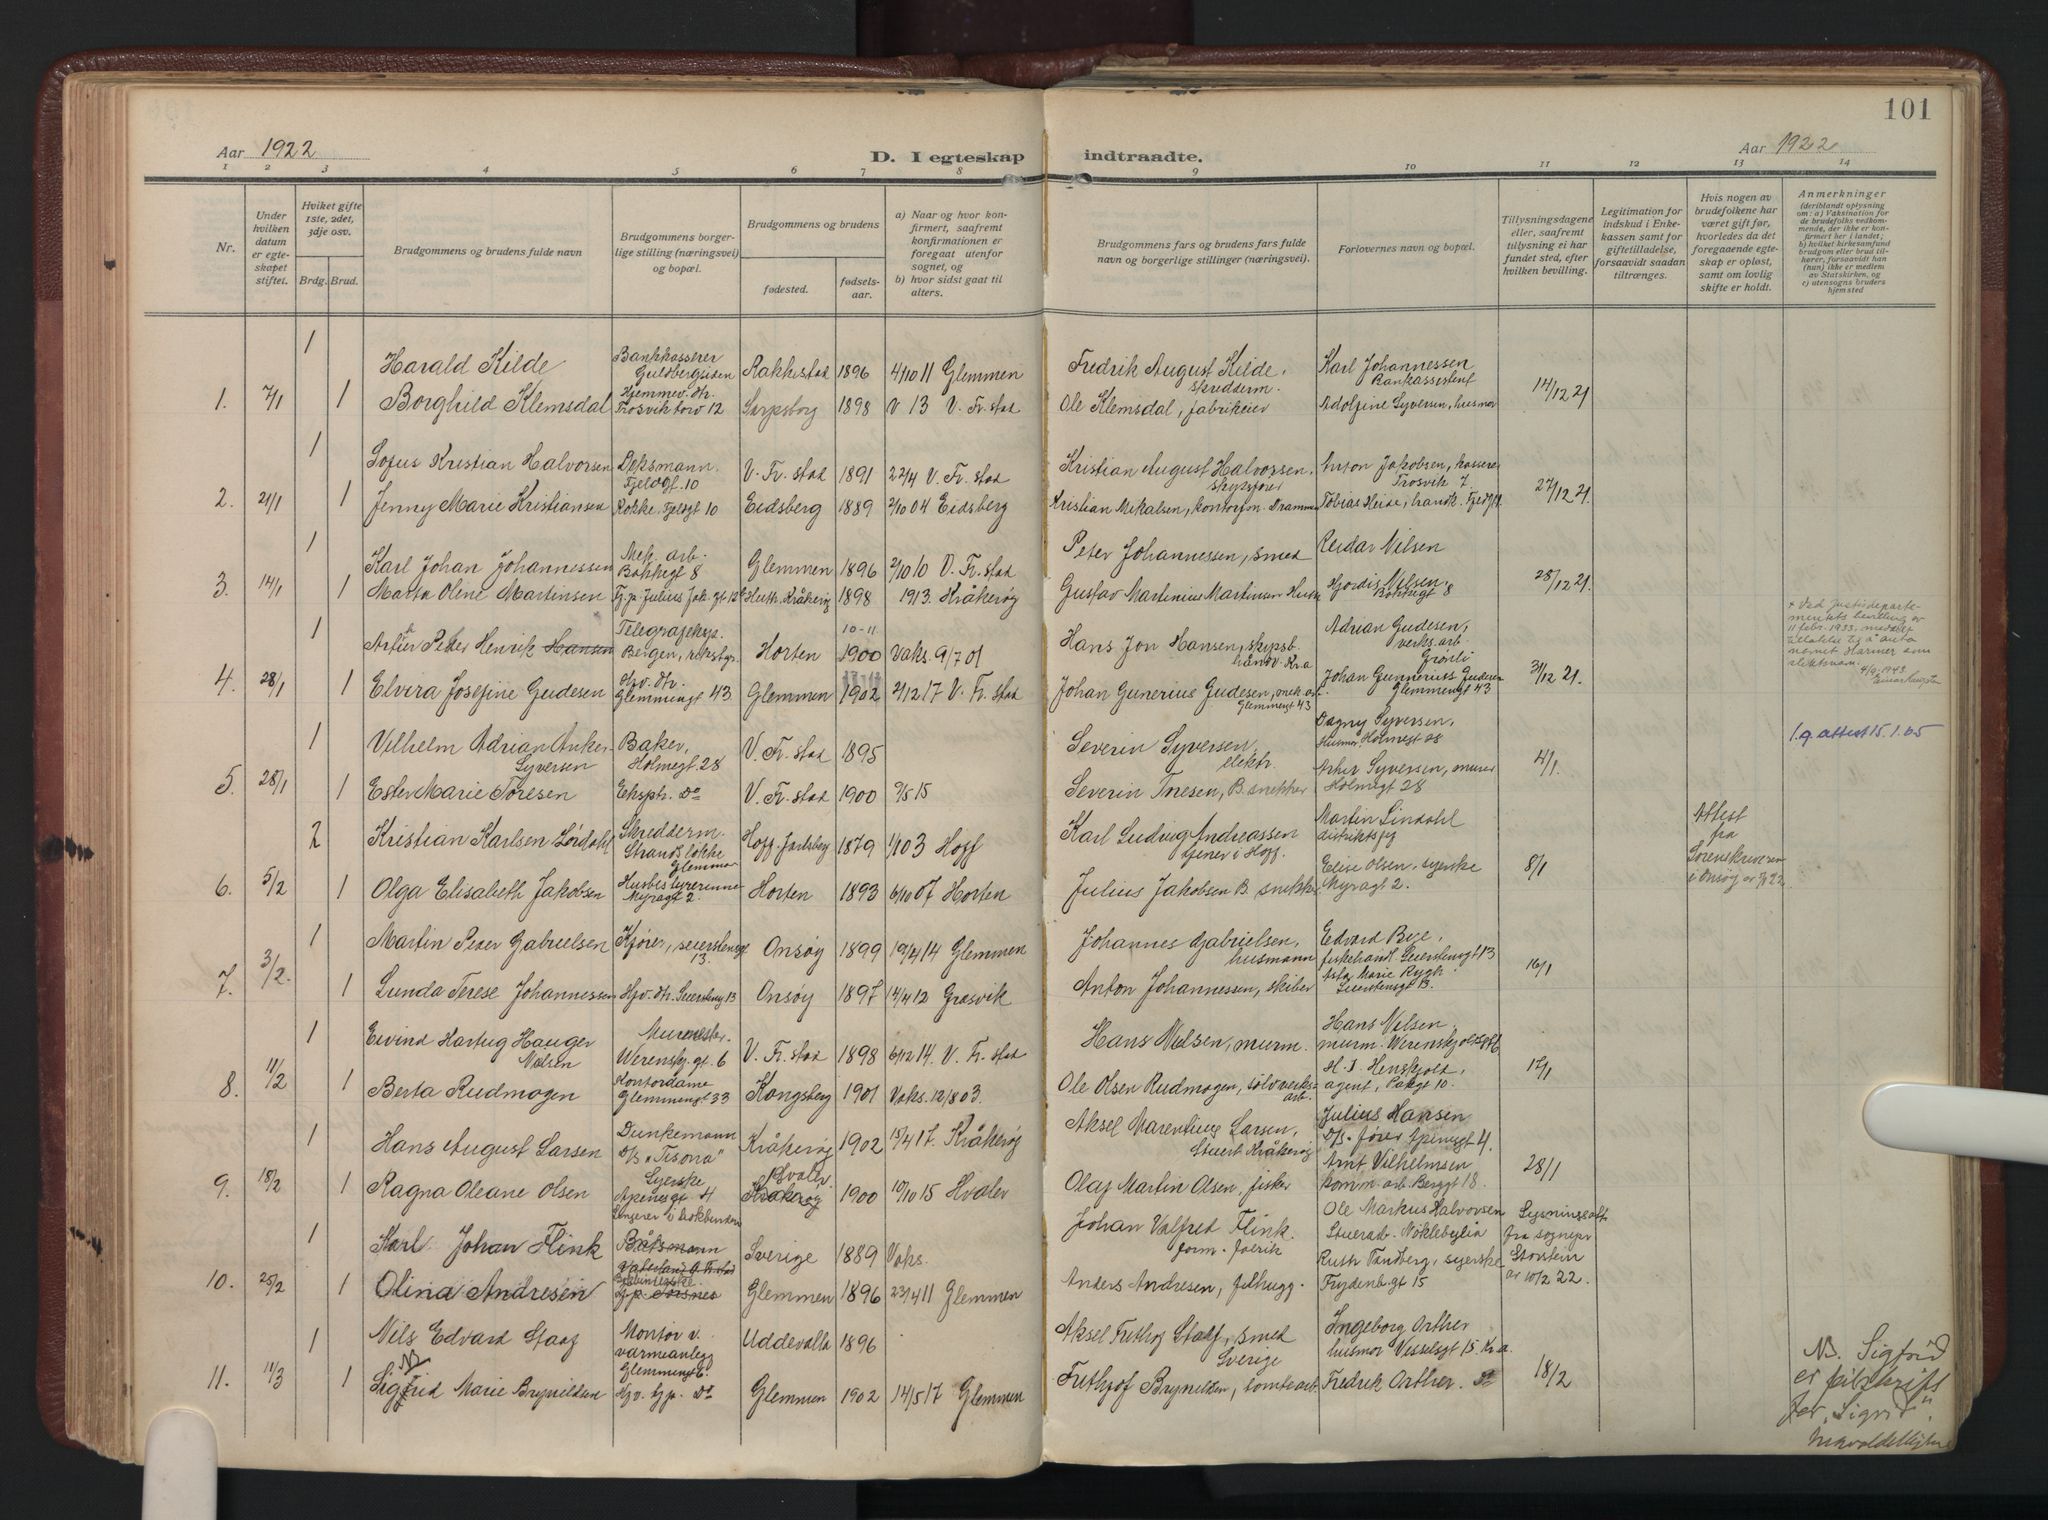 101
Aar 1922
D. I egteskap indtraadte.
Aar 1922
1 2 3 4 5 6 7 8 9 10 11 12 13 14
Nr.
Under hvilken datum er egteskapet stiftet.
Hviket gifte 1ste, 2det, 3dje osv.
Brdg. Brud.
Brudgommens og brudens fulde navn
Brudgommens borgerlige stilling (næringsvei) og bopæl.
Brudgommens og brudens
fødested. fødselsaar.
a) Naar og hvor konfirmert, saafremt konfirmationen er foregaat utenfor sognet, og
b) hvor sidst gaat til alters.
Brudgommens fars og brudens fars fulde navn og borgerlige stillinger (næringsvei).
Forlovernes navn og bopæl.
Tillysningsdagene eller, saafremt tillysning ei har fundet sted, efter hvilken bevilling.
Legitimation for indskud i Enkekassen samt for giftetilladelse, forsaavidt saadan tiltrænges.
Hvis nogen av brudefolkene har været gift før, hvorledes da det foregaaende egteskap er opløst, samt om lovlig skifte er holdt.
Anmerkninger
(deriblandt oplysning om: a) Vaksination for de brudefolks vedkommende, der ikke er konfirmert her i landet;
b) hvilket kirkesamfund brudgom eller brud tilhører, forsaavidt han (hun) ikke er medlem av Statskirken, og
c) utensogns bruders hjemsted
1
Harald Kilde Bankkasserer Guldbergsiden Rakkestad 1896 4/10 11 Glemmen Fredrik August Kilde, skredderm. Karl Johannessen Bankassistent
1. 7/1 1 Borghild Klemsdal Hjemmev. dtr. Trosvik torv 12 Sarpsborg 1898 v 13 V. Fr. stad Ole Klemsdal, fabrikeier Adolfine Syversen, husmor 14/12 21
1
Sofus Kristian Halvorsen Fjeldgt. 10 V. Fr. stad 1891 22/4 V. Fr. stad Kristian August Halvorsen, Anton Jakobsen, Trosvik 7
2. 21/1 1 Jenny Marie Kristiansen Kokke, Fjeldgt 10 Eidsberg 1889 2/10 04 Eidsberg Kristian Mikalsen, Drammen Tobias Heide, handk. 27/12 21
1
Karl Johan Johannessen Mek. arb. Bakkegt 8 Glemmen 1896 2/10 10 V. Fr. stad Peter Johannessen, smed Reidar Nilsen
3. 14/1 1 Marta Oline Martinsen Kråkerøy 1898 1913. Kråkerøy Gustav Martinius Martinsen Hjordis Nilsen, Bakkegt 8 28/12 21
1
Peter Henrik Hansen Telegrafeksp. Bergen, Horten 1900 10-11 Vaks. 9/7 01 Hans Jon Hansen, Adrian Gudesen, verks.arb. Grønli
4. 28/1 1 Elvira Josefine Gudesen Hjv. dtr. Glemmengt 43 Glemmen 1902 2/12 17 V. Fr. stad Johan Gunerius Gudesen, mek. arb. Glemmengt 43 Johan Gunerius Gudesen Glemmengt 43 31/12 21.
+ Ved Justisdepartementets bevilling av 11 febr. 1933. meddelt tillatelse til å anta navnet Harmer som slektsnavn.
1
Vilhelm Adrian Anker Syversen Baker, Holmegt. 28 V. Fr. stad 1895 Severin Syversen, elektr. Dagny Syversen, Husmor Holmegt 28
l.g. attest 15.1.65
5. 28/1 1 Ester Marie Toresen Ekspt. do V. Fr. stad 1900 9/5 15 Severin Toresen, B. snekker Arthur Syversen, murer Holmegt 28 4/1.
2
Kristian Karlsen Lørdahl Skredderm. Strandsløkke Glemmen Hoff. Jarlsberg 1879 1/10 3 Hoff Karl Ludvig Andreassen tjener i Hoff. Martin Lindahl
Attest fra Sorenskriveren i Onsøy
6. 5/2 1 Olga Elisabeth Jakobsen Husbestyrerinne Myragt 2. Horten 1893 6/10 07 Horten Julius Jakobsen B. snikker Elise Olsen, syerske Myragt 2. 8/1
1
Martin Peder Gabrielsen Kjører, Seierstensgt 13. Onsøy 1899 19/4 14 Glemmen Johannes Gabrielsen, husmann Edvard Bye, fiskehand. Seierstensgt 13
7. 3/2. 1 Lunda Terese Johannessen Hjv. dtr. Seierstensgt 13 Onsøy 1897 14/4 12 Gresvik Anton Johannessen, skiber Asta Marie Rygh Seierstensgt 13. 16/1
1
Eivind Hartvig Hauger Nilsen Murmester. Werenskj. gt. 6 V. Fr. stad 1898 6/12 14. V. Fr. stad Hans Nilsen, murm. Hans Nilsen, murm. Werenskjoldsgt 6
8. 11/2 1 Berta Rudmogen Kontordame Glemmengt 33 Kongsberg 1901 Vaks. 12/8 03. Ole Olsen Rudmogen, sølvverksarb. H. J. Henskjold, agent, 17/1
1
Hans August Larsen Dunkemann D/S "Tisona" Kråkerøy 1902 15/4 17. Kråkerøy Aksel Marentius Larsen, Stuert Kråkerøy Julius Hansen D/S-fører 4.
9. 18/2 1 Ragna Oleane Olsen Syerske Apenesgt 4 Kråkerøy Hvaler 1900 10/10 15 Hvaler Olaf Martin Olsen, fisker Arnt Vilhelmsen komm. arb. Berggt 18. 28/1
1
Karl Johan Flink Båtsmann Sverige 1889 Vaks. Johan Valfred Flink. Ole Markus Halvorsen Stuerarb. Nøklebylia Lysningsatt. fra sognepr.
10. 25/2 1 Olina Andresen Glemmen 1896 23/4 11 Glemmen Anders Andresen, filhugg. Ruth Tandberg, syerske Frydenb.gt 15 av 10/2 22.
1
Nils Edvard Staaf Montør v. varmeanlegg Glemmengt 6. Uddevalla 1896 Aksel Frithjof Staff, smed Sverige Ingeborg Orther husmor Vesselsgt 15. Kr.a.
11. 11/3 1 Sigfrid NB Marie Brynildsen Hjv. Gp. do Glemmen 1902 14/5 17 Glemmen Frithjof Brynildsen, tomtearb. Fredrik Orther. do 18/2
NB. Sigfrid er feilskrift for "Sigrid".